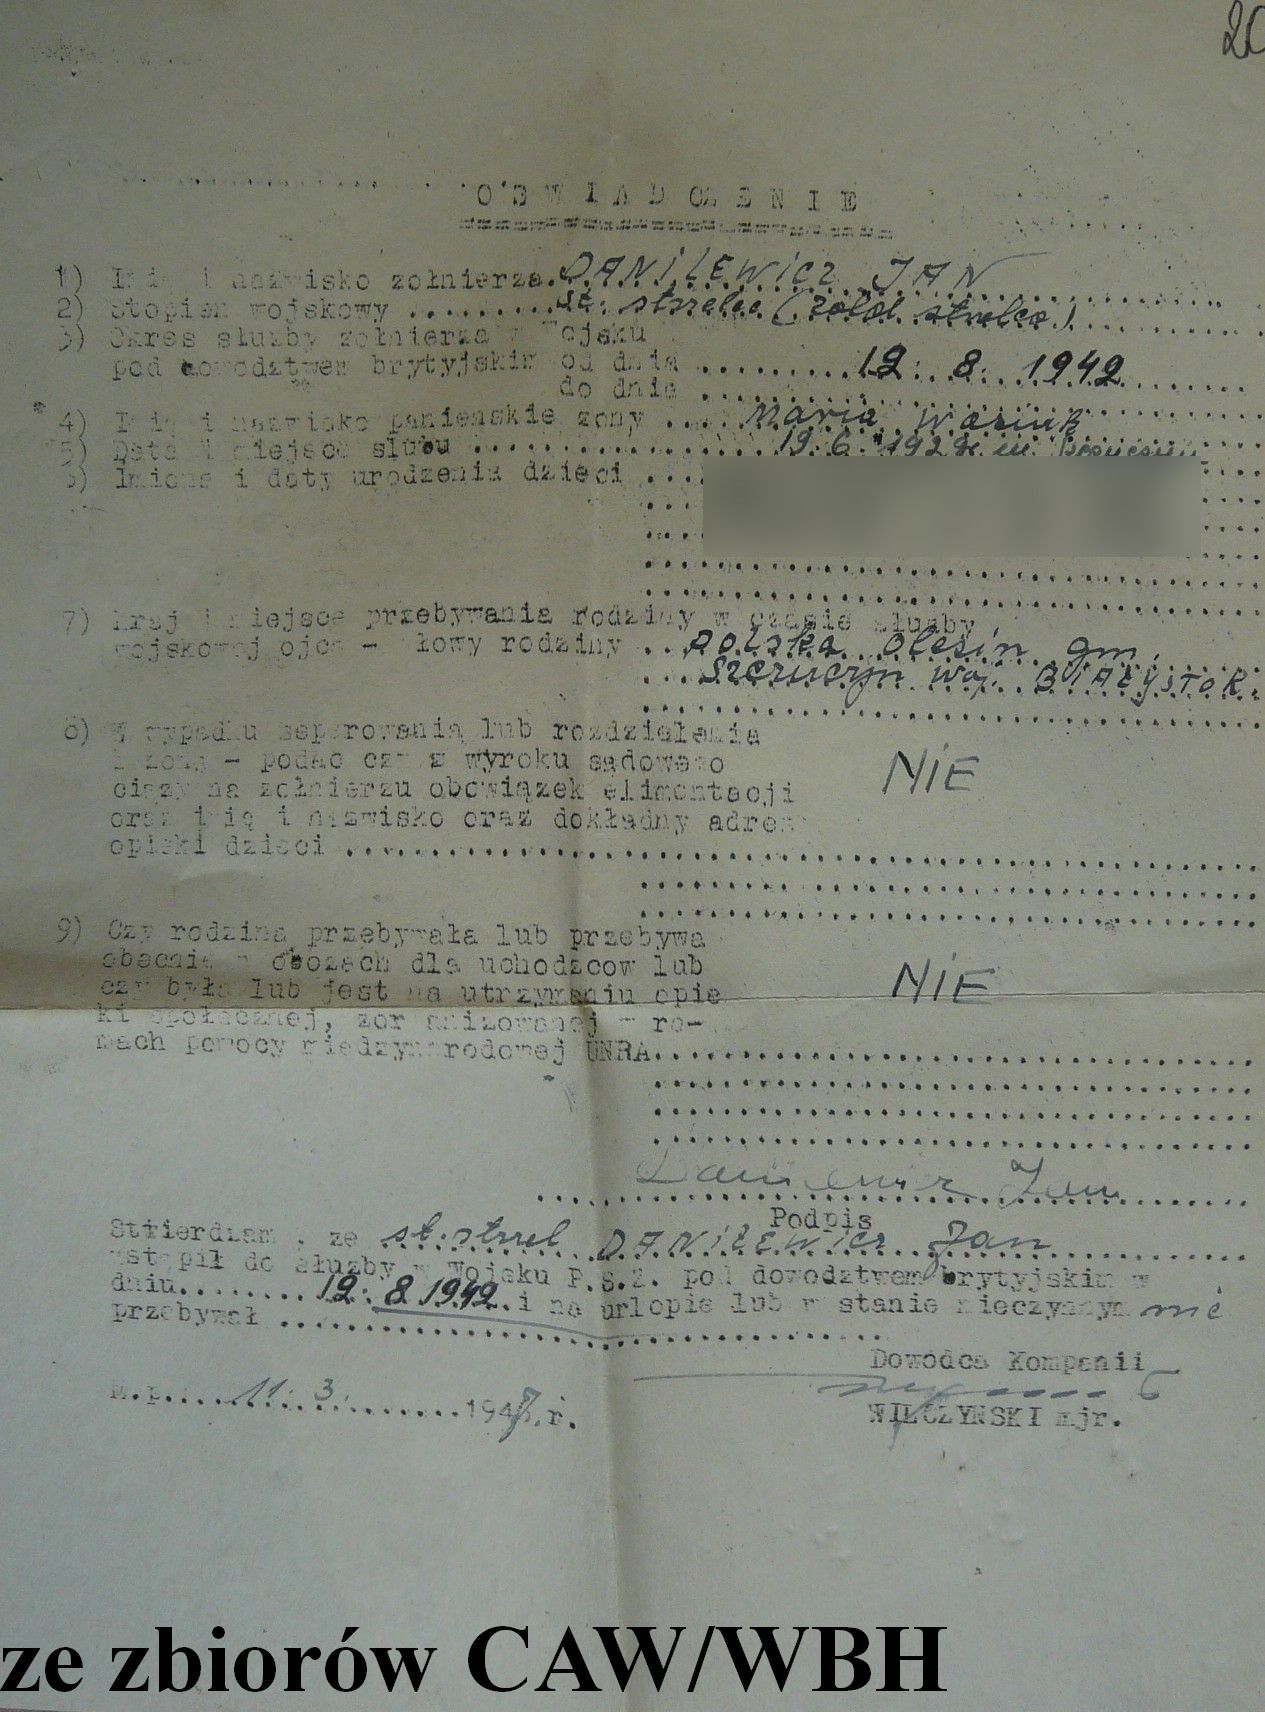 20
O S W I A D C Z E N I E
1) Imię i nazwisko zołnierza. DANILEWICZ JAN
2) Stopien wojskowy ......... st. strzelec (żołd strzelca)
3) Okres służby zołnierza w Wojsku
pod dowodztwem brytyjskim od dnia ......... 12. 8. 1942
do dnia .........
4) Imię i nazwisko panieńskie zony .... Maria
5) Data i miejsce slubu ......... 19. 6. 192
6) Imiona i daty urodzenia dzieci ...
7) Kraj i miejsce przebywania rodziny w czasie służby
wojskowej ojca - głowy rodziny ... Polska Olesin gm.
... Szczuczyn woj. BIAŁYSTOK.
8) W wypadku separowania lub rozdzielenia
z zoną - podac czy z wyroku sądowego NIE
ciąży na zołnierzu obowiązek alimentacji
oraz imię i nazwisko oraz dokładny adres
opieki dzieci .........
9) Czy rodzina przebywała lub przebywa
obecnie w obozach dla uchodzcow lub NIE
czy była lub jest na utrzymaniu opie
ki społecznej, zorganizowanej w ra-
mach pomocy międzynarodowej UNRA.........
Danilewicz Jan
Podpis
Stwierdzam, ze st. strzel DANILEWICZ Jan
wstąpił do służby w Wojsku P.S.Z. pod dowodztwem brytyjskim w
dniu........ 12. 8. 1942. i na urlopie lub w stanie nieczynnym nie
przebywał .........
Dowódca Kompanii
M.p. .... 11. 3. ......... 1947. r.
WILCZYNSKI mjr.
ze zbiorów CAW/WBH